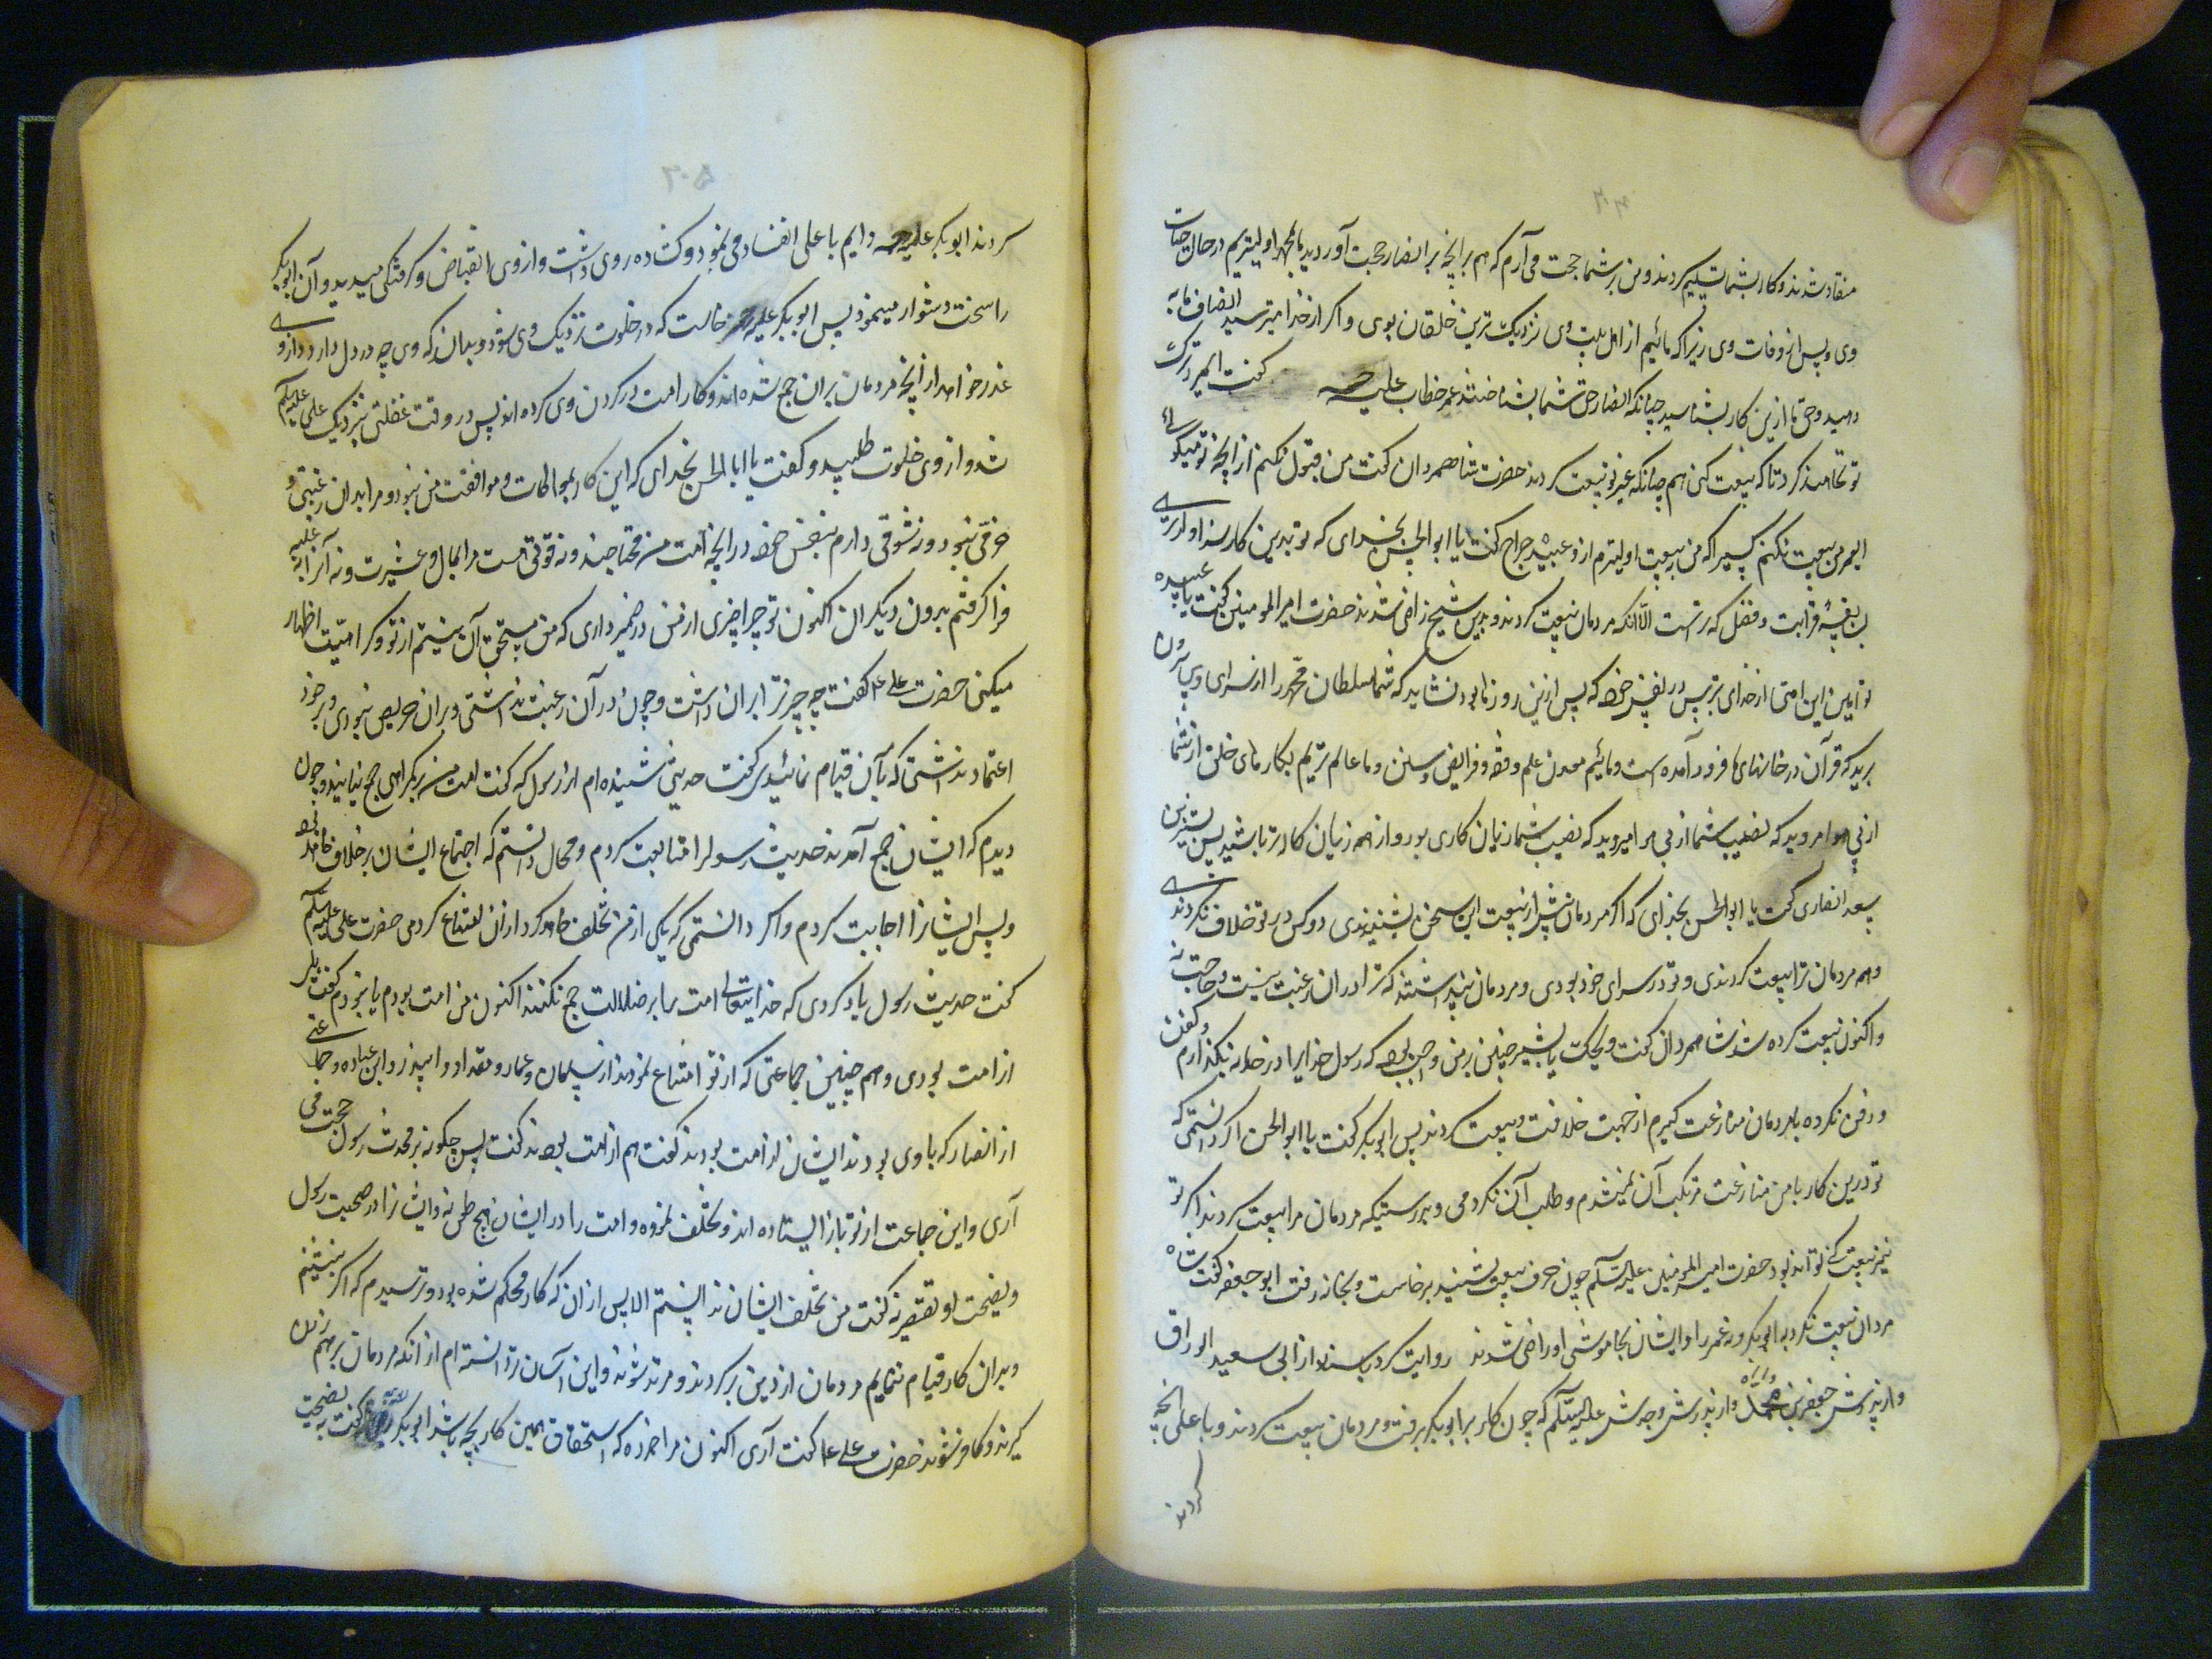 منقاد شدند و کار بشما تسلیم کردند و من بر شما حجت می آرم که هم بر آنچه بر انصار حجت آوردید ما بمحمد اولیتریم در حال حیات
وی و پس از وفات وی زیرا که مائیم از اهل بیت وی نزدیک ترین خلقان بوی و اگر از خدا میترسید انصاف ما به
دهید و حق ما ازین کار بشناسید چنانکه انصار حق شما بشناختند عمر خطاب علیه گفت
تو که بیعت کنی هم چنانکه غیر تو بیعت کردند حضرت شاه مردان گفت من قبول نکنم از آنچه تو میگوئی
ای عمر من بیعت نکنم کسیرا که من به بیعت اولیترم ازو عبیده جراح گفت یا ابوالحسن بخدای که تو بدین کار سزاوارتری
بفضل و قرابت و فضل که تراست الا آنکه مردمان بیعت کردند و بدین شیخ راضی شدند حضرت امیر المومنین گفت یا عبیده
تو امین این امتی از خدای بترس در نفس خود که پس ازین روزها بود نشاید که شما سلطان محمد را از سرای وی بیرون
برید که قرآن در خانهای ما فرود آمده است و مائیم معدن علم و فقه و فرایض و سنن و ما عالم تریم بکارهای خلق از شما
از پی هوا مروید که نصیب شما از پی هوا میروید که نصیب شما زیان کاری بود و از همه زیان کارتر باشید پس بشیر بن
سعد انصاری گفت یا ابوالحسن بخدای که اگر مردمان پیش از بیعت این سخن بشنیدندی دو کس در تو خلاف نکردندی
و همه مردمان ترا بیعت کردندی و تو در سرای خود بودی و مردمان پنداشتند که ترا در آن رغبت نیست و حاجت نه
و اکنون بیعت کرده شد شاه مردان گفت ویحک یا بشیر چنین بر من واجب بود که رسول خدایرا در خانه بگذارم و کفن
و دفن نکرده با مردمان منازعت گیرم از جهت خلافت و بیعت کردند پس ابوبکر گفت یا ابوالحسن اگر دانستمی که
تو درین کار با من منازعت مرتکب آن نمیشدم و طلب آن نکردمی و بدرستیکه مردمان مرا بیعت کردند اگر تو
نیز بیعت کنی تواند بود حضرت امیر المومنین علیه السلام چون حرف بیعت بشنید برخاست و بخانه رفت ابو جعفر گفت شاه
مردان بیعت نکرد به ابوبکر و نه عمر را و ایشان بخاموشی او راضی شدند روایت کرد باسناد از ابی سعید الوراق
و از پدرش جعفر بن محمد و از پدرش و جدش علیه السلام که چون کار بر ابوبکر برفت و مردمان بیعت کردند و با علی آنچه
کردند
کردند ابوبکر علیه دایم با علی انبساط می نمود و گشاده روی داشت و از وی انقباض و گرفتگی میدید و آن ابوبکر
را سخت دشوار مینمود پس ابوبکر علیه خواست که در خلوت نزدیک وی شود و بداند که وی چه در دل دارد و ازو
عذر خواهد از آنچه مردمان بران جمع شده اند و کار امت در کردن وی کرده اند پس در وقت غفلتی بنزدیک علی علیه السلام
شد و از وی خلوت طلبید و گفت یا ابا الحسن بخدای که این کار بموالات و موافقت من نبود و مرا بدان رغبتی و
حرصی نبود و نه شوقی دارم بنفس خود در آنچه امت من محتاجند و نه قوتی است مرا بمال و عشیرت و نه آنرا بغلبه
فرا گرفتم بدون دیگران اکنون تو چرا چیزی از من در ضمیر داری که من مستحق آن نیستم از تو و کراهیت اظهار
میکنی حضرت علی ع گفت چه چیز ترا بران داشت و چون در آن رغبت نداشتی و بران حریص نبودی و بر خود
اعتماد نداشتی که بآن قیام نمائی ابوبکر گفت حدیثی شنیده ام از رسول که گفت امت من بر گمراهی جمع نیایند و چون
دیدم که ایشان جمع آمدند حدیث رسولرا متابعت کردم و محال دانستم که اجتماع ایشان بر خلاف خدا بود
و پس ایشانرا اجابت کردم و اگر دانستمی که یکی از من تخلف خواهد کرد از آن امتناع کردمی حضرت علی علیه السلام
گفت حدیث رسول یاد کردی که خدایتعالی امت مرا بر ضلالت جمع نکند اکنون من از امت بودم یا نبودم گفت بلی
از امت بودی و هم چنین جماعتی که از تو امتناع نمودند از سلمان و عمار و مقداد و ابیذر و ابن عباده و جماعتی
از انصار که با وی بودند ایشان از امت بودند گفت هم از امت بودند گفت پس چگونه بر حدیث رسول حجت می
آری و این جماعت از تو باز ایستاده اند و تخلف نموده و امت را در ایشان هیچ طعن نه و ایشانرا در صحبت رسول
و نصیحت او تقصیر نه گفت من تخلف ایشان ندانستم الا پس از آن که کار محکم شده بود و ترسیدم که اگر بنشینم
و بدان کار قیام ننمایم مردمان از دین برگردند و مرتد شوند و این آسان تر دانستم از آنکه مردمان بر هم زدن
گیرند و کافر شوند حضرت علی ع گفت آری اکنون مرا خبر ده که استحقاق همین کار بچه باشد ابوبکر گفت بنصیحت